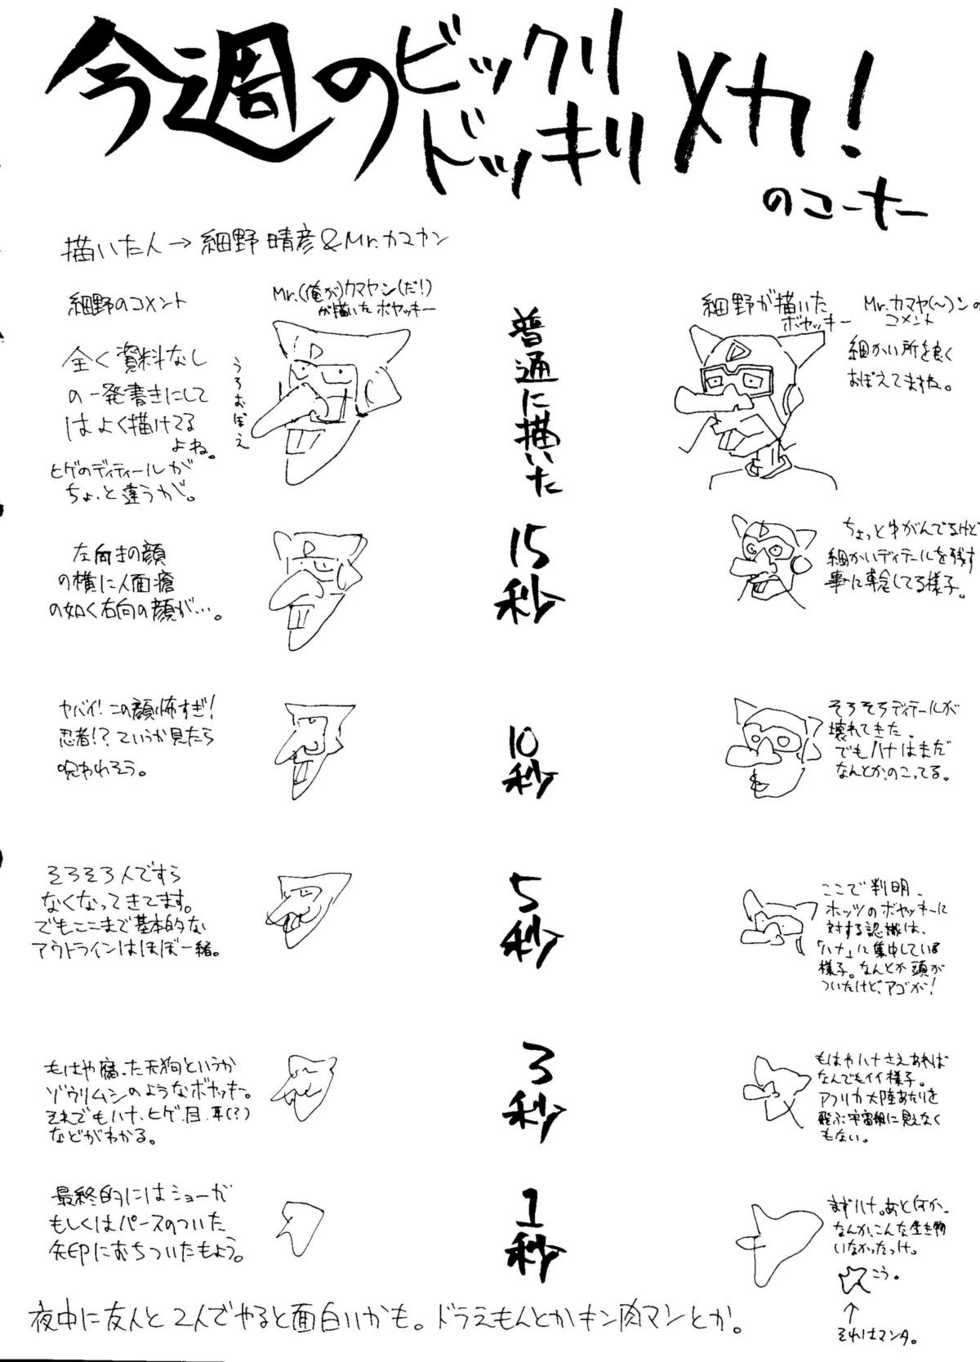 今週のビックリ
ドッキリメカ！
のコーナー
描いた人→細野晴彦&Mr.カマヤン
細野のコメント
Mr.(俺が)カマヤン(だ!)
が描いたボヤッキー
普通に描いた
細野が描いた
ボヤッキー
Mr.カマヤ(〜)ンの
コメント
全く資料なし
の一発書きにして
はよく描けてる
よね。
ヒゲのディティールが
ちょっと違うが。
うろおぼえ
細かい所を良く
おぼえてますね。
15秒
左向きの顔
の横に人面瘡
の如く右向の顔が…。
ちょっとゆがんでるけど
細かいディテールを残す
事に専念してる様子。
10秒
ヤバイ!この顔怖すぎ!
忍者!?ていうか見たら
呪われそう。
そろそろディテールが
壊れてきた。
でもハナはまだ
なんとかのこってる。
5秒
そろそろ人ですら
なくなってきてます。
でもここまで基本的な
アウトラインはほぼ一緒。
ここで判明、
ホッツのボヤッキーに
対する認識は、
「ハナ」に集中している
様子。なんとか頭が
ついたけど、アゴが!
3秒
もはや腐った天狗というか
ゾウリムシのようなボヤッキー。
それでもハナ、ヒゲ、目、耳(?)
などがわかる。
もはやハナさえあれば
なんでもイイ様子。
アフリカ大陸あたりを
飛ぶ宇宙船に見えなく
もない。
1秒
最終的にはショーガ
もしくはパースのついた
矢印におちついたもよう。
まずハナ。あと何か。
なんか、こんな生き物
いなかったっけ。
こう。
↑
それはマンタ。
夜中に友人と2人でやると面白いかも。ドラえもんとかキン肉マンとか。